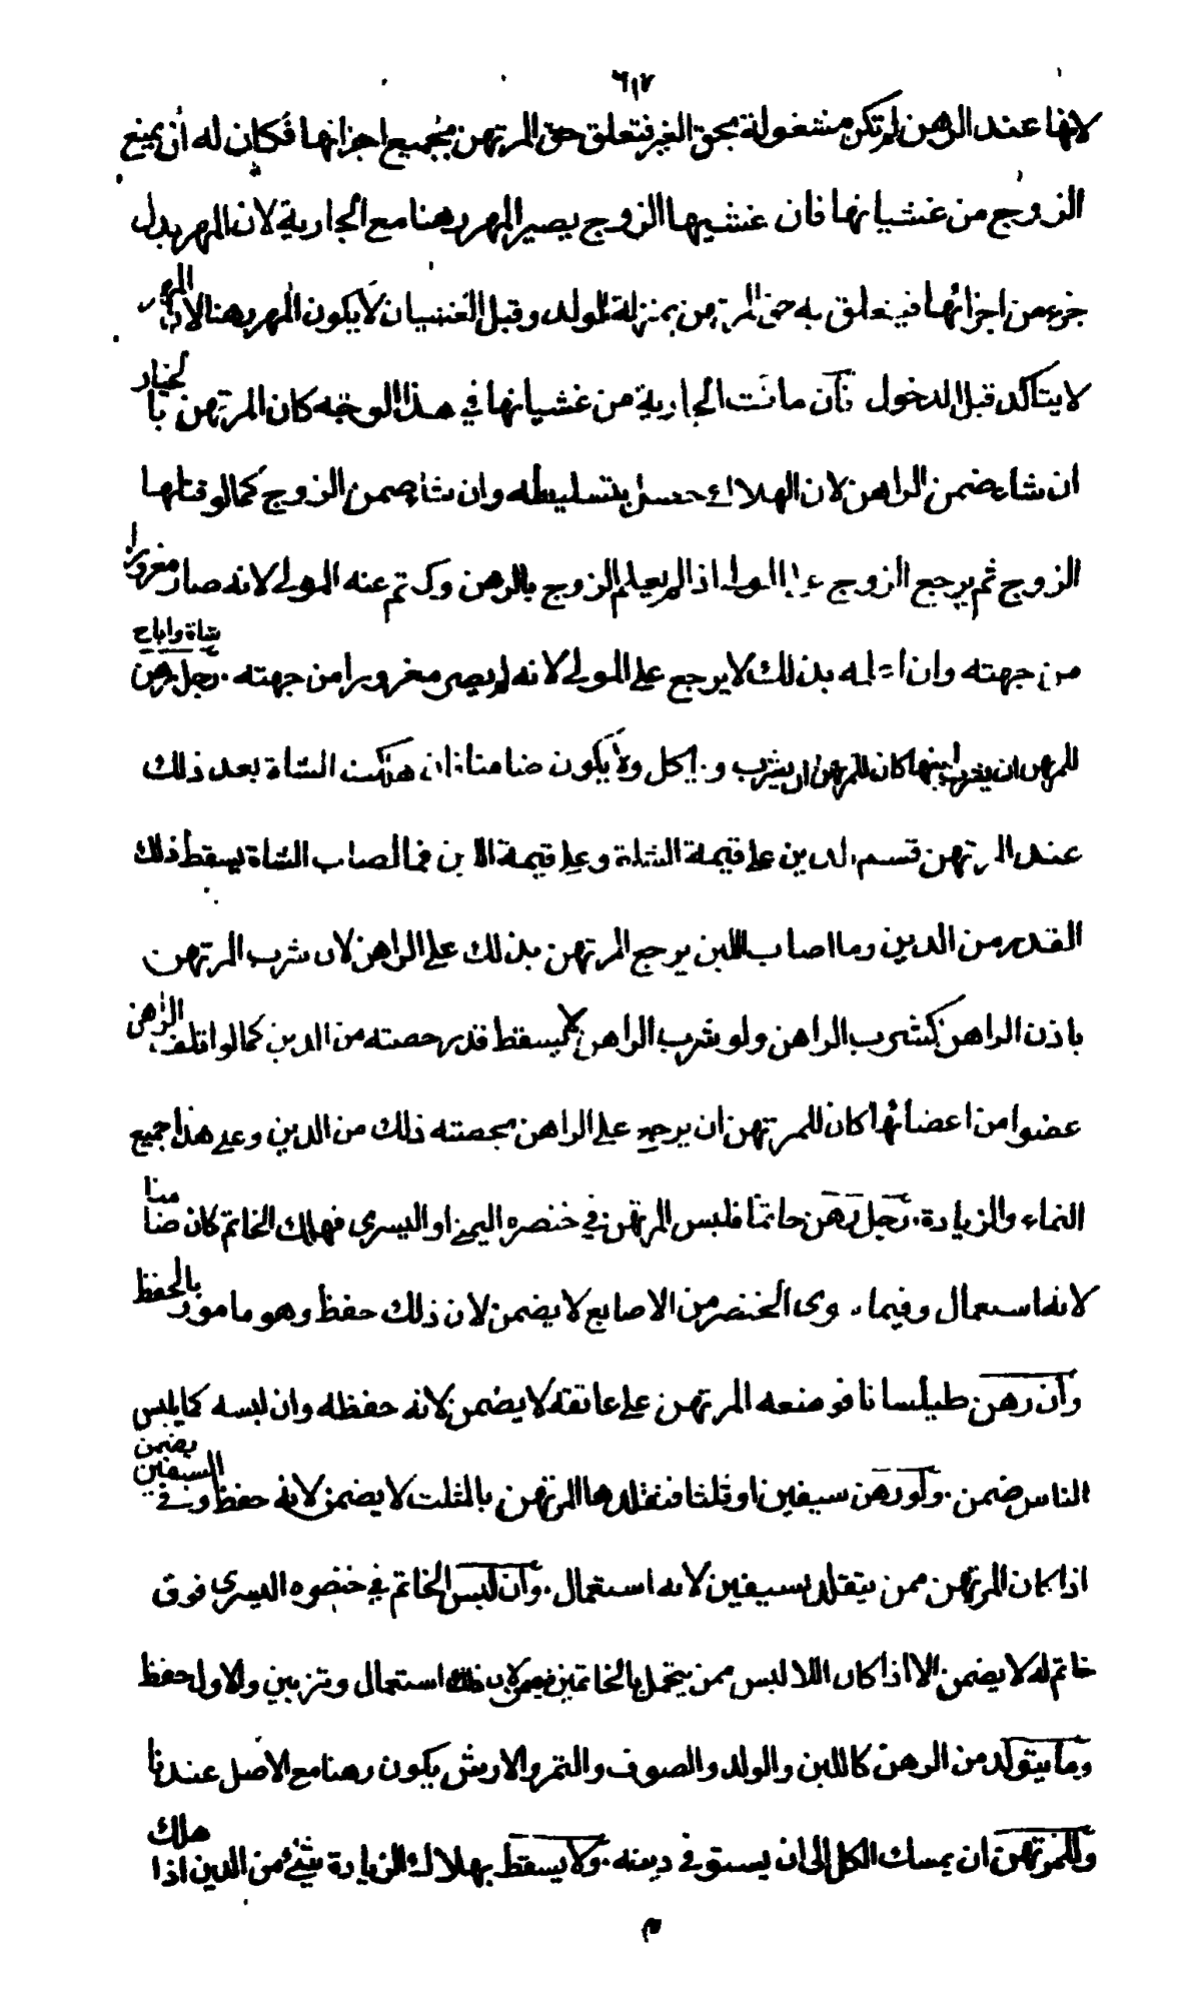 ٦١٧
لانها عند الرهن لم تكن مشغولة بحق الغير فتعلق حق المرتهن بجميع اجزائها فكان له أن يمنع
الزوج من غشيانها فان غشيها الزوج يصير المهر رهنا مع الجارية لان المهر بدل
جزء من اجزائها فيتعلق به حق المرتهن بمنزلة الولد وقبل الغشيان لا يكون المهر رهنا لان المهر
لا يتأكد قبل الدخول فان ماتت الجارية من غشيانها في هذا الوجه كان المرتهن بالخيار
ان شاء ضمن الراهن لان الهلاك حصل بتسليطه وان شاء ضمن الزوج كما لو قتلها
الزوج ثم يرجع الزوج على المولى اذا لم يعلم الزوج بالرهن وكتم عنه المولى لانه صار مغرورا
من جهته وان اعلمه بذلك لا يرجع على المولى لانه لم يصر مغرورا من جهته . رجل رهن شاة واباح
للمرتهن ان يشرب لبنها كان للمرتهن ان يشرب و يأكل ولا يكون ضامنا فان هلكت الشاة بعد ذلك
عند المرتهن قسم الدين على قيمة الشاة وعلى قيمة اللبن فما اصاب الشاة يسقط ذلك
القدر من الدين وما اصاب اللبن يرجع المرتهن بذلك على الراهن لان شرب المرتهن
باذن الراهن كشرب الراهن ولو شرب الراهن لم يسقط قدر حصته من الدين كما لو اتلف الراهن
عضوا من اعضائها كان للمرتهن ان يرجع على الراهن بحصته ذلك من الدين وعلى هذا جميع
النماء والزيادة . رجل رهن خاتما فلبس المرتهن في خنصره اليمنى او اليسرى فهلك الخاتم كان ضامنا
لانه استعمال وفيما سوى الخنصر من الاصابع لا يضمن لان ذلك حفظ وهو مامور بالحفظ
وان رهن طيلسانا فوضعه المرتهن على عاتقه لا يضمن لانه حفظه وان لبسه كما يلبس
الناس ضمن . ولو رهن سيفين او ثلثا فتقلدها المرتهن بالثلث لا يضمن لانه حفظ وفي السيفين يضمن
اذا كان المرتهن ممن يتقلد بسيفين لانه استعمال . وان لبس الخاتم في خنصره اليسرى فوق
خاتم له لا يضمن الا اذا كان اللابس ممن يتجمل بالخاتمين فيضمن لان ذلك استعمال وتزيين والاول حفظ
وما يتولد من الرهن كاللبن والولد والصوف والثمر والارش يكون رهنا مع الاصل عندنا
وللمرتهن ان يمسك الكل الى ان يستوفي دينه . ولا يسقط بهلاك الزيادة شئ من الدين اذا هلك
م